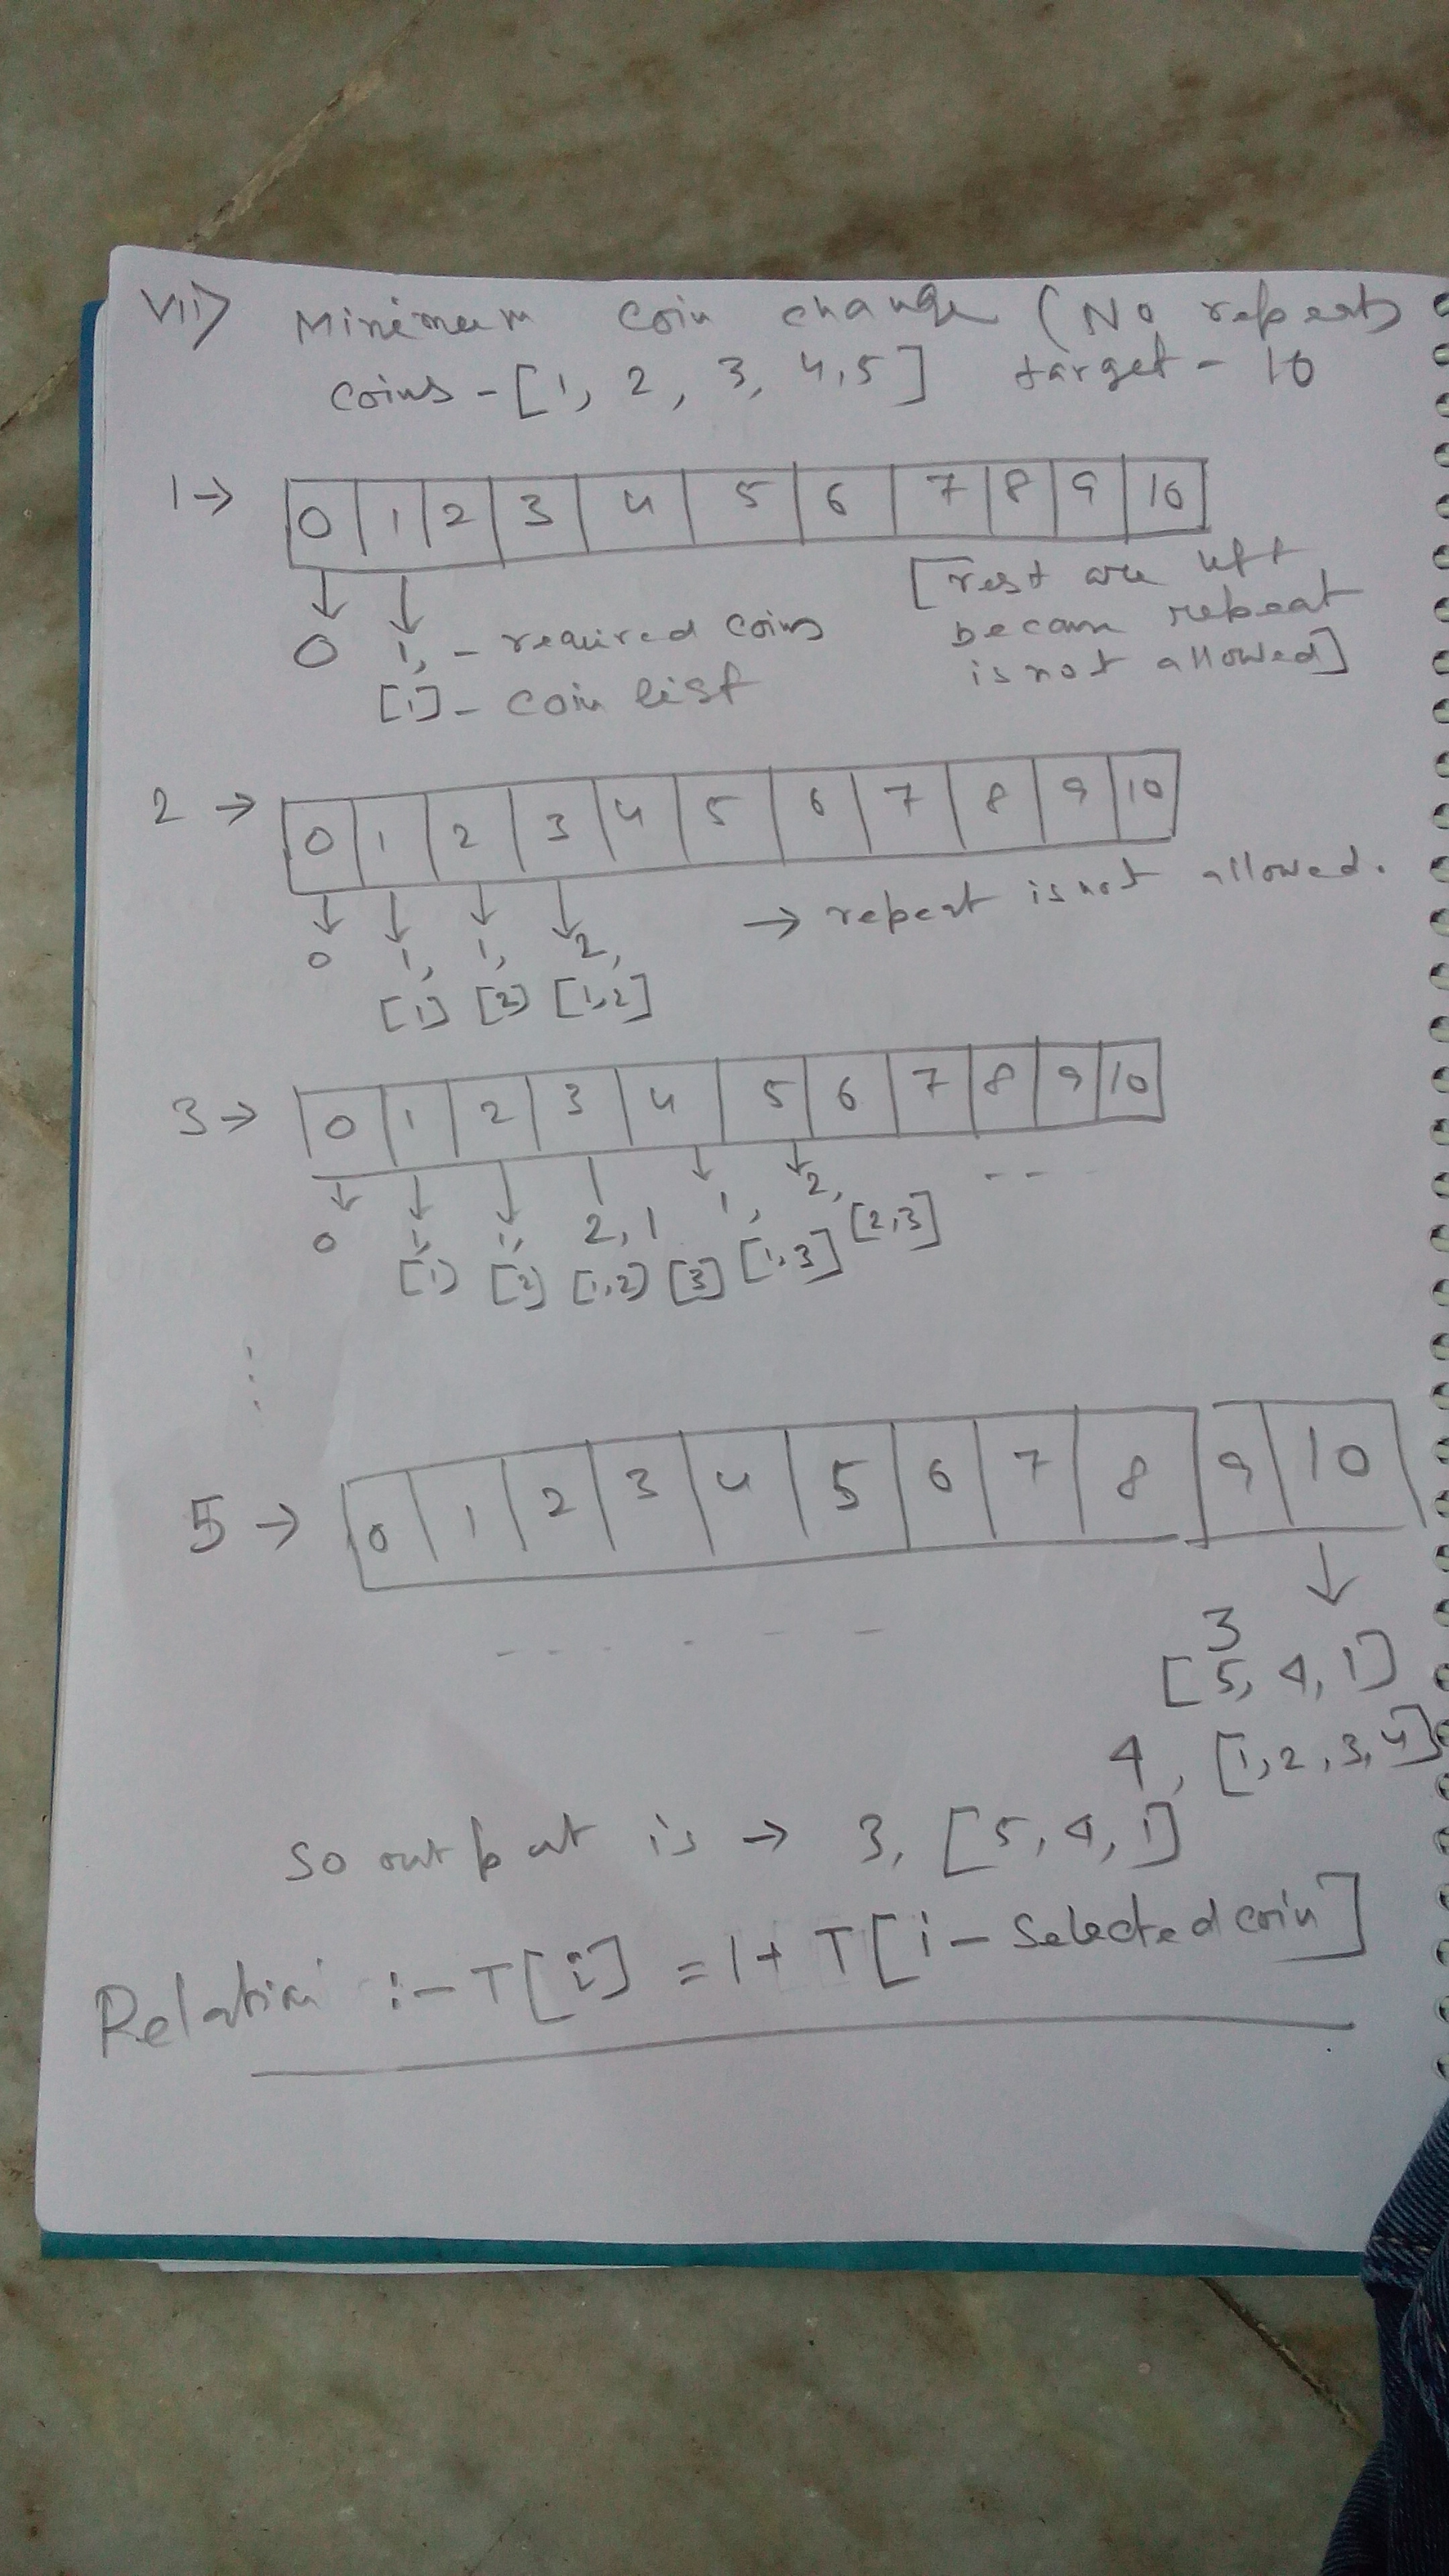 VII) Minimum coin change (No repeat)
coins - [1, 2, 3, 4, 5] target - 10
1 → 0 1 2 3 4 5 6 7 8 9 10
0 1, - required coins
[1] - coin list
[rest are left
because repeat
is not allowed]
2 → 0 1 2 3 4 5 6 7 8 9 10
→ repeat is not allowed.
0 1, 1, 2,
[1] [2] [1,2]
3 → 0 1 2 3 4 5 6 7 8 9 10
0 1, 1, 2, 1 1, 2, - - -
[1] [2] [1,2] [3] [1,3] [2,3]
5 → 0 1 2 3 4 5 6 7 8 9 10
3
[5, 4, 1]
4, [1, 2, 3, 4]
So output is → 3, [5, 4, 1]
Relation :- T[i] = 1 + T[i - Selected coin]